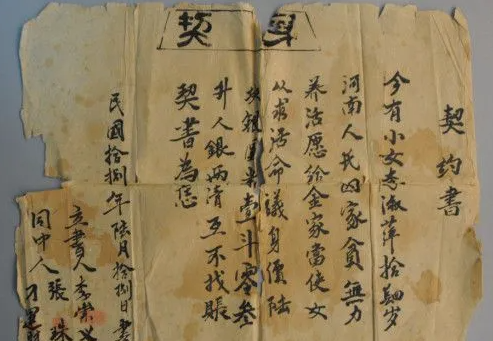 身契
契约書
今有小女李淑萍拾岁
河南人氏因家貧無力
养活愿给金家當使女
以求活命議身價陸
圆米壹斗零叁
升人銀两清互不找賬
契書為恁
民國拾捌年陸月拾捌日書
立書人李崇义
同中人張珠